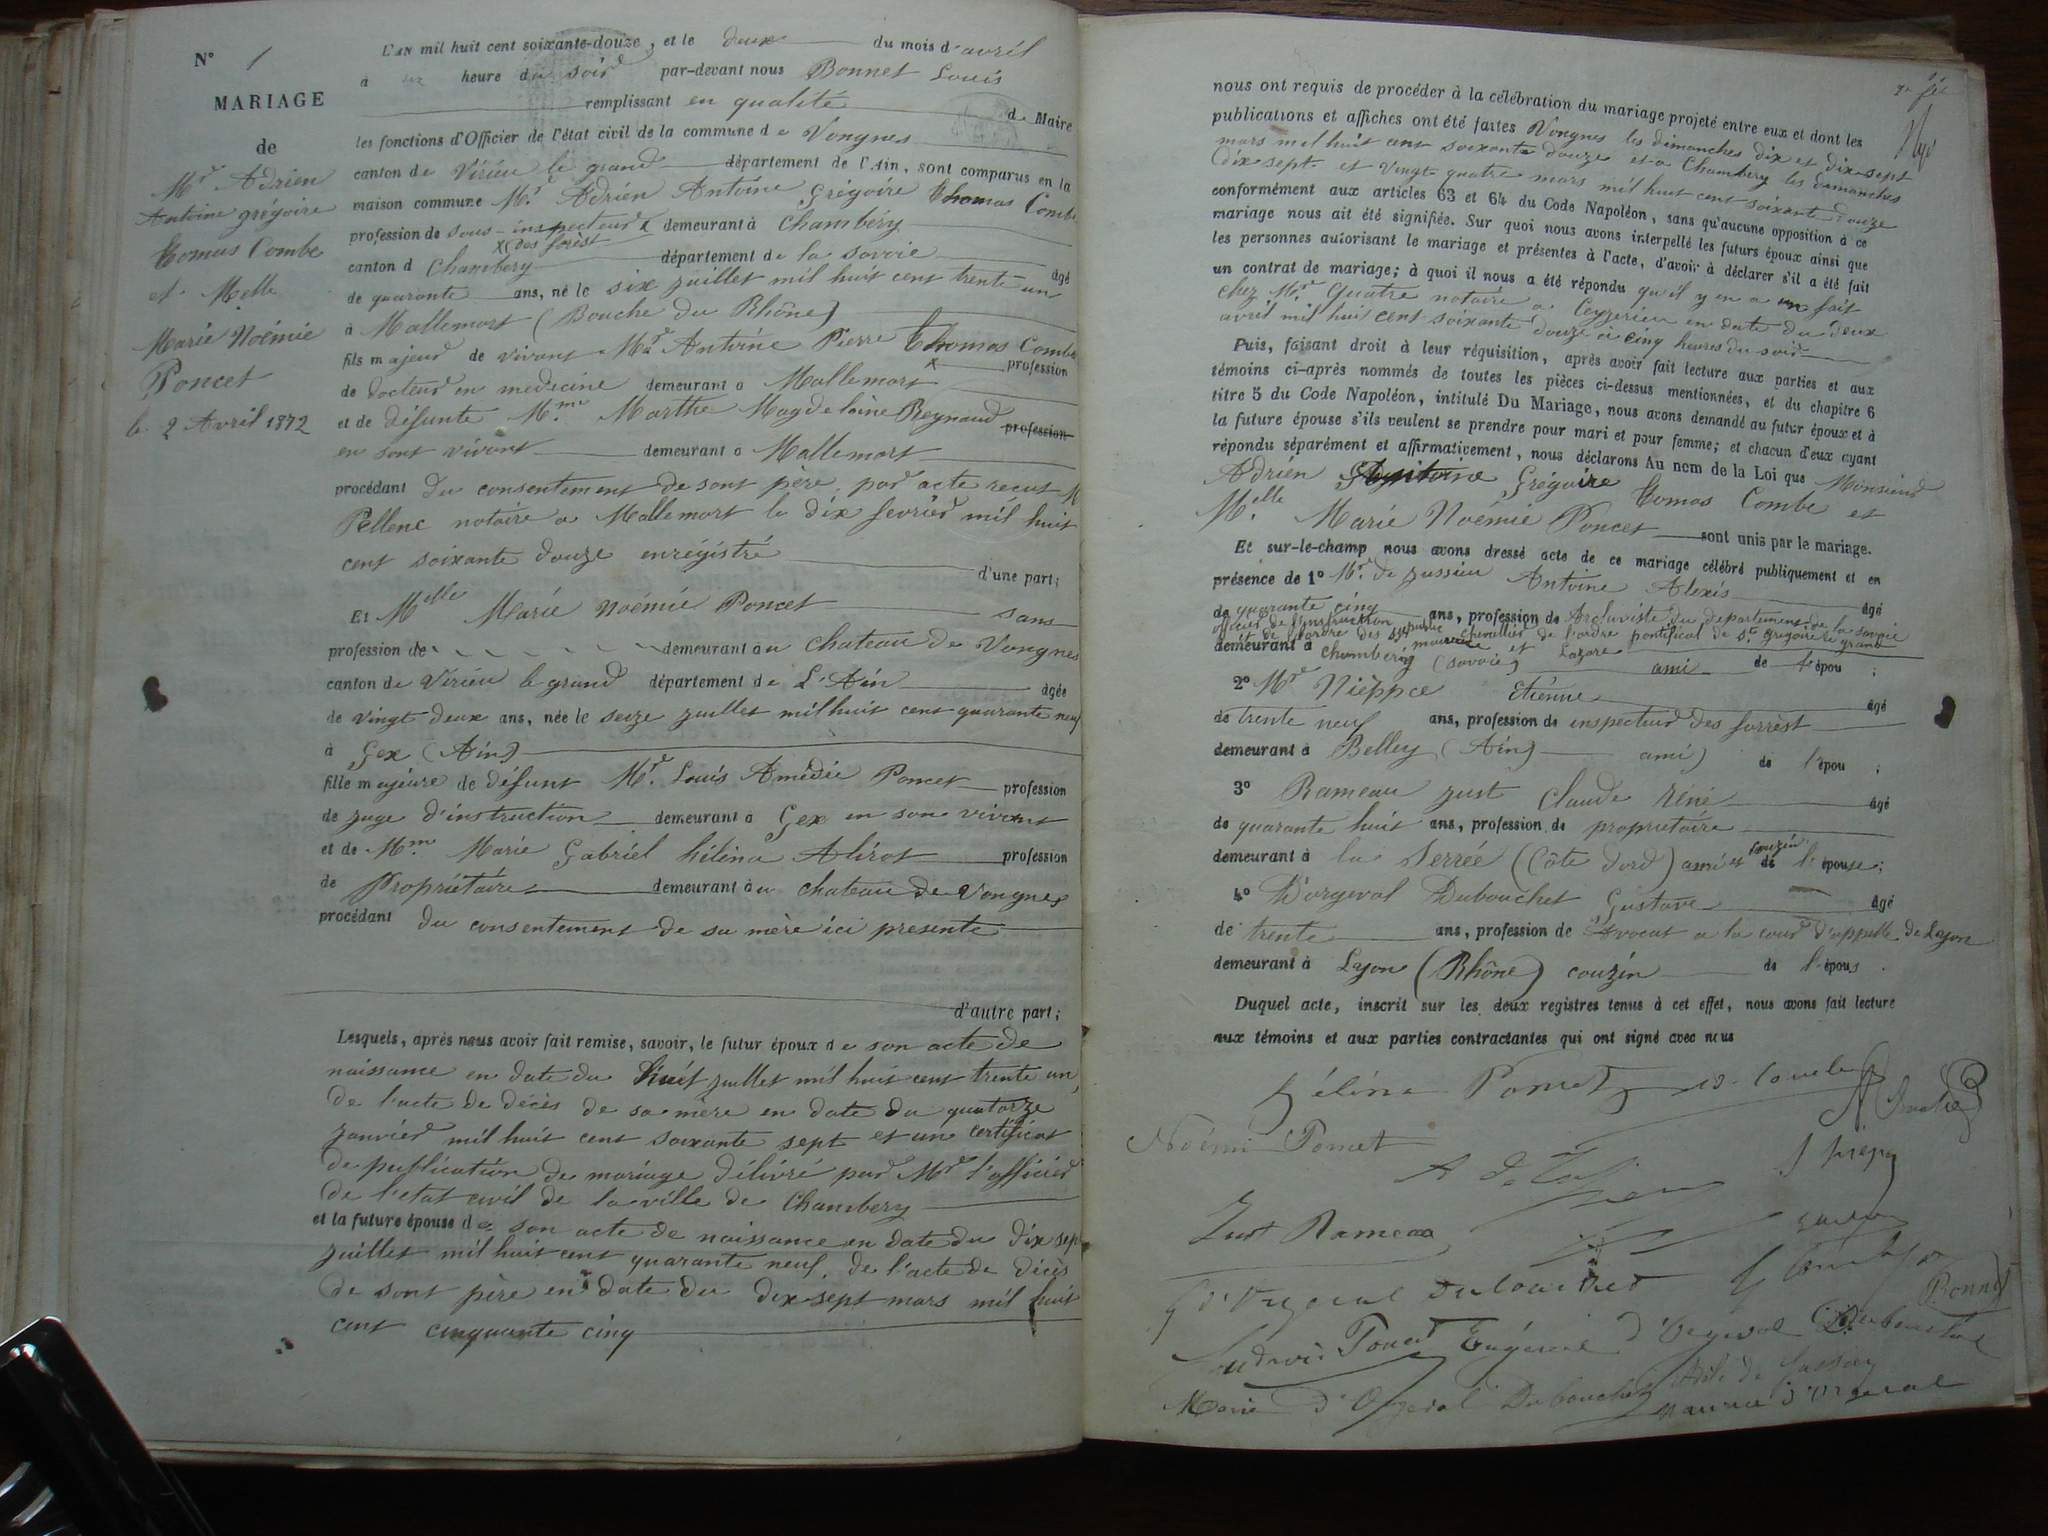 N° 1
MARIAGE
de
Mr Adrien
Antoine grégoire
tomas Combe
et Melle
Marie Noémie
Poncet
le 2 Avril 1872
L'AN mil huit cent soixante-douze, et le deux du mois d'avril
à heure du soir par-devant nous Bonnet Louis
remplissant en qualité de Maire
les fonctions d'Officier de l'état civil de la commune de Vongnes
canton de Virieu le grand département de l'Ain, sont comparus en la
maison commune Mr Adrien Antoine Grégoire Thomas Combe
profession de sous-inspecteur x demeurant à Chambéry
x des forèst
canton d Chambery département de la savoie âgé
de quarante ans, né le six juillet mil huit cent trente un
à Mallemort (Bouche du Rhône)
fils majeur de vivant Mr Antoine Pierre Thomas Combe
x profession
de docteur en medecine demeurant à Mallemort
et de défunte Mme Marthe Magdelaine Reynaud profession
en sont vivant demeurant à Mallemort
procédant du consentement de sont père, par acte recut M
Pellenc notaire a Mallemort le dix fevrier mil huit
cent soixante douze enrégistré
d'une part;
Et Melle Marie Noémie Poncet sans
profession de demeurant au chateau de Vongnes
canton de Virieu le grand département de L'Ain âgée
de vingt deux ans, née le seize juillet mil huit cent quarante neuf
à Gex (Ain)
fille majeure de défunt Mr Louis Amédée Poncet profession
de juge d'instruction demeurant à Gex en son vivant
et de Mme Marie Gabriel hélèna Alirot profession
de Propriétaire demeurant au chateau de Vongnes
procédant du consentement de sa mère ici presente
d'autre part;
Lesquels, après nous avoir fait remise, savoir, le futur époux de son acte de
naissance en date du huit juillet mil huit cent trente un,
de l'acte de décès de sa mère en date du quatorze
janvier mil huit cent soixante sept et un certificat
de publication de mariage délivré par Mr l'officier
de l'etat civil de la ville de Chambery
et la future épouse de son acte de naissance en date du dix sept
juillet mil huit cent quarante neuf, de l'acte de décès
de sont père en date du dix sept mars mil huit
cent cinquante cinq
nous ont requis de procéder à la célébration du mariage projeté entre eux et dont les
publications et affiches ont été faites Vongnes les dimanches dix et dix-sept
mars mil huit cent soixante douze et a Chambery les dimanches
dix sept et vingt quatre mars mil huit cent soixante douze
conformément aux articles 63 et 64 du Code Napoléon, sans qu'aucune opposition à ce
mariage nous ait été signifiée. Sur quoi nous avons interpellé les futurs époux ainsi que
les personnes autorisant le mariage et présentes à l'acte, d'avoir à déclarer s'il a été fait
un contrat de mariage; à quoi il nous a été répondu qu'il y en a un fait
chez Mr Quatre notaire a Ceyzerieu en date du deux
avril mil huit cent soixante douze a cinq heures du soir
Puis, faisant droit à leur réquisition, après avoir fait lecture aux parties et aux
témoins ci-après nommés de toutes les pièces ci-dessus mentionnées, et du chapitre 6
titre 5 du Code Napoléon, intitulé Du Mariage, nous avons demandé au futur époux et à
la future épouse s'ils veulent se prendre pour mari et pour femme; et chacun d'eux ayant
répondu séparément et affirmativement, nous déclarons Au nom de la Loi que Monsieur
Adrien Antoine Grégoire tomas Combe et
Melle Marie Noémie Poncet sont unis par le mariage.
Et sur-le-champ nous avons dressé acte de ce mariage célébré publiquement et en
présence de 1° Mr de jussieu Antoine Alexis âgé
de quarante cinq ans, profession de Archiviste du departement de la savoie
officier de l'instruction publique chevallier de l'ordre pontifical de st gregoire le grand
et de l'ordre des st maurice et Lazare
demeurant à Chambéry (savoie) ami de l'épou ;
2° Mr Nieppce Etienne âgé
de trente neuf ans, profession de inspecteur des forrèst
demeurant à Belley (Ain) ami de l'épou ;
3° Rameau just Claude réné âgé
de quarante huit ans, profession de propriétaire
demeurant à la Serrée (Côte d'ord) ami et couzin de l'épouse;
4° D'orgeval Dubouchet Gustave âgé
de trente ans, profession de Avocat a la cour d'appelle de Lyon
demeurant à Lyon (Rhône) couzin de l'épous .
Duquel acte, inscrit sur les deux registres tenus à cet effet, nous avons fait lecture
aux témoins et aux parties contractantes qui ont signé avec nous
Hélèna Poncet
Noémi Poncet
Just Rameau
G d'Orgeval Dubouchet
Bonnet
Ludovic Poncet Eugénie d'Orgeval Dubouchet
Marie d'Orgeval Dubouchet
Maurice d'Orgeval